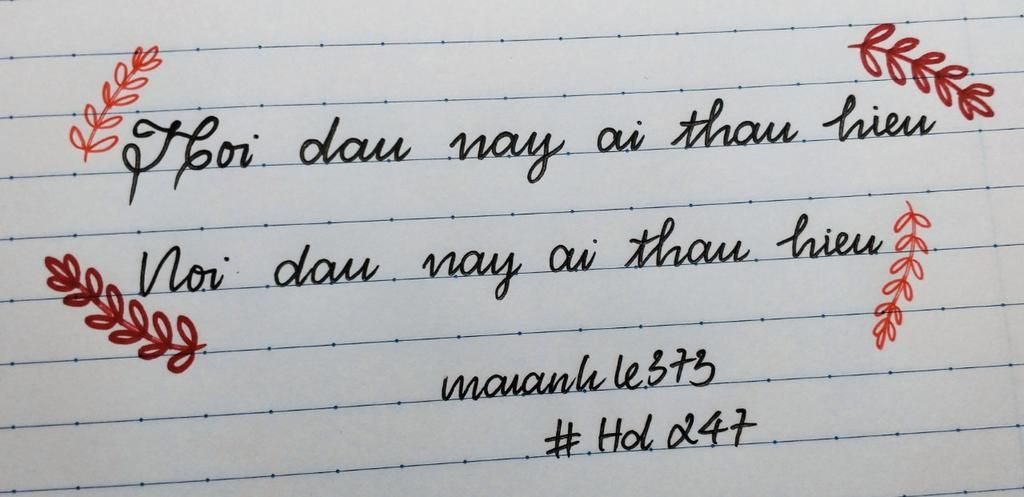 Noi dau nay ai thau hieu
Noi dau nay ai thau hieu
maianh le373
# Hd 247